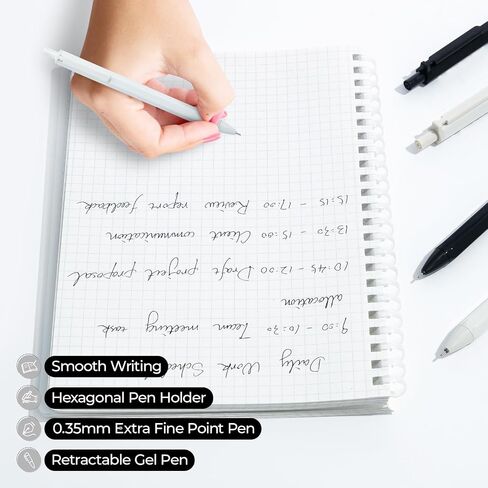 Daily Work Sched
9:00 - 10:30 Team meeting task
allocation
10:45 - 12:00 Draft project proposal
13:30 - 15:00 Client communication
15:15 - 17:00 Review report feedback
Smooth Writing
Hexagonal Pen Holder
0.35mm Extra Fine Point Pen
Retractable Gel Pen